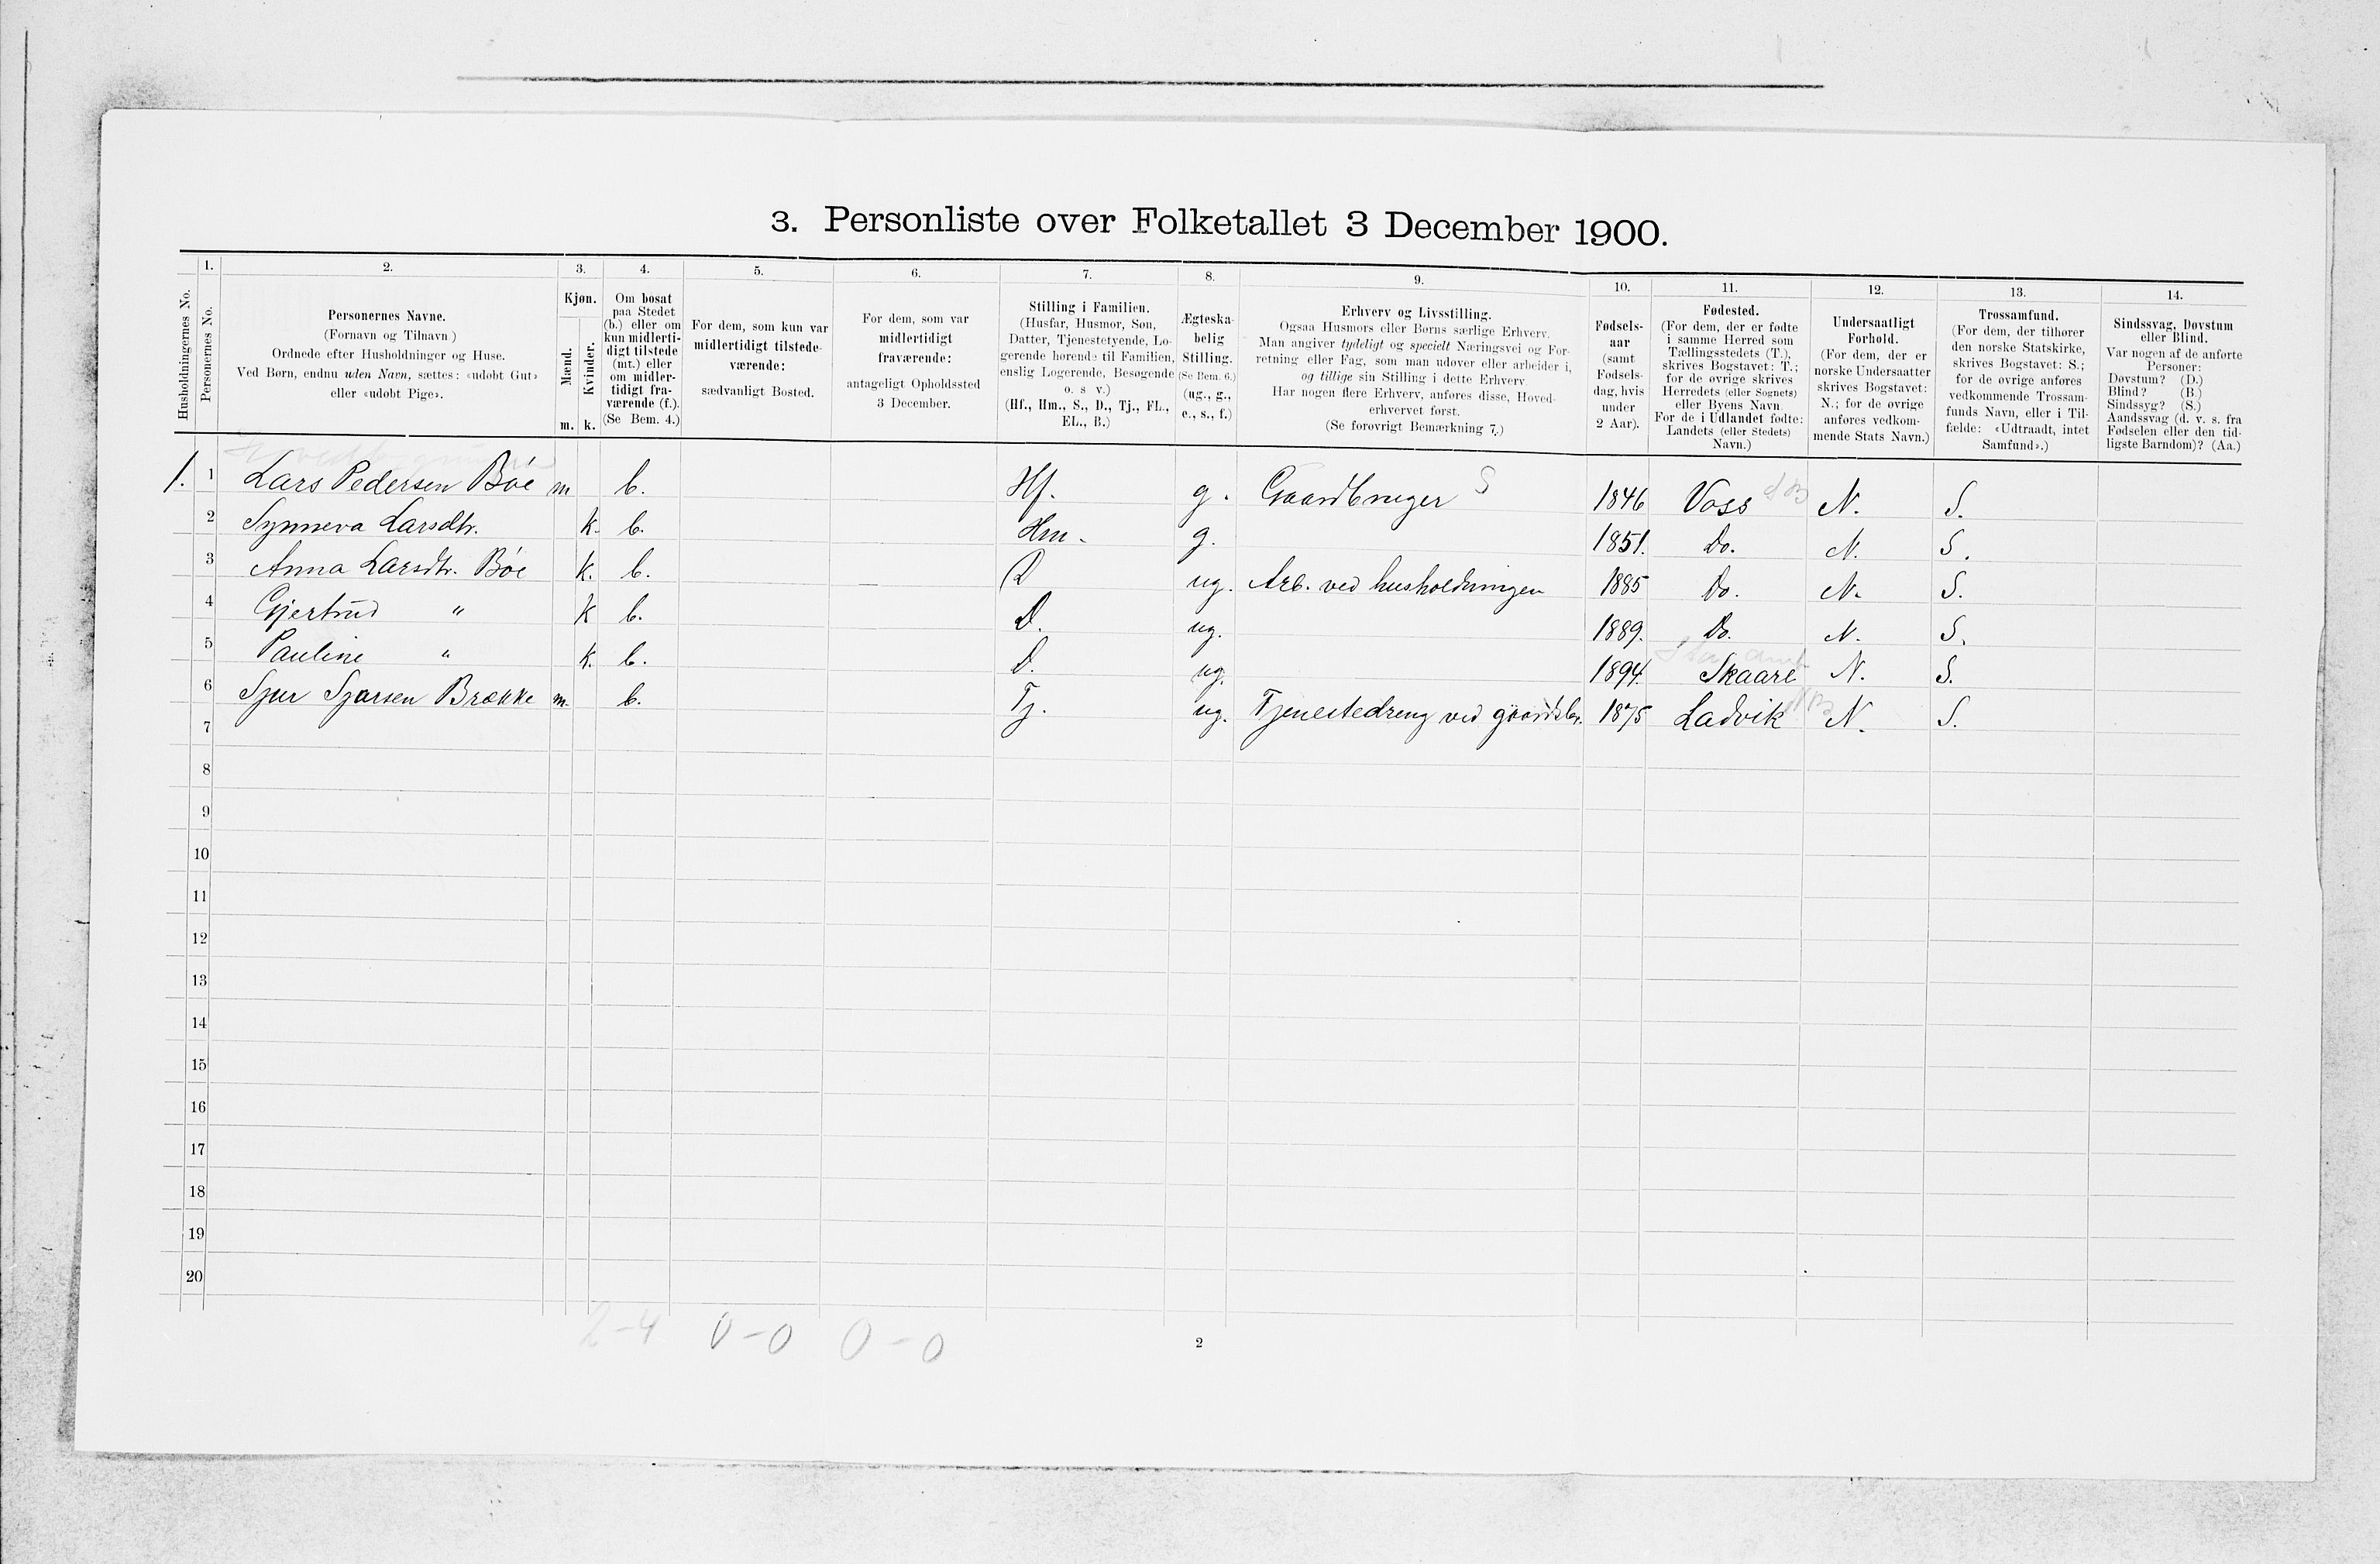 3. Personliste over Folketallet 3 December 1900.
1. 2. 3. 4. 5. 6. 7. 8. 9. 10. 11. 12. 13. 14.
Husholdningernes No.
Personernes No.
Personernes Navne.
(Fornavn og Tilnavn)
Ordnede efter Husholdninger og Huse.
Ved Børn, endnu uden Navn, sættes: «udøbt Gut»
eller «udøbt Pige».
Kjøn.
Mænd.
Kvinder.
m. k.
Om bosat
paa Stedet
(b.) eller om
kun midlerti-
digt tilstede
(mt.) eller
om midler-
tidigt fra-
værende (f.).
(Se Bem. 4.)
For dem, som kun var
midlertidigt tilstede-
værende:
sædvanligt Bosted.
For dem, som var
midlertidigt
fraværende:
antageligt Opholdssted
3 December.
Stilling i Familien.
(Husfar, Husmor, Søn,
Datter, Tjenestetyende, Lo-
gerende hørende til Familien,
enslig Logerende, Besøgende
o. s v.)
(Hf., Hm., S., D., Tj., FL.,
EL., B.)
Ægteska-
belig
Stilling.
(Se Bem. 6.)
(ug., g.,
e., s., f.)
Erhverv og Livsstilling.
Ogsaa Husmors eller Børns særlige Erhverv.
Man angiver tydeligt og specielt Næringsvei og For-
retning eller Fag, som man udøver eller arbeider i,
og tillige sin Stilling i dette Erhverv.
Har nogen flere Erhverv, anføres disse, Hoved-
erhvervet først.
(Se forøvrigt Bemærkning 7.)
Fødsels-
aar
(samt
Fødsels-
dag, hvis
under
2 Aar).
Fødested.
(For dem, der er fødte
i samme Herred som
Tællingsstedets (T.),
skrives Bogstavet: T.;
for de øvrige skrives
Herredets (eller Sognets)
eller Byens Navn.
For de i Udlandet fødte:
Landets (eller Stedets)
Navn.)
Undersaatligt
Forhold.
(For dem, der er
norske Undersaatter
skrives Bogstavet:
N.; for de øvrige
anføres vedkom-
mende Stats Navn.)
Trossamfund.
(For dem, der tilhører
den norske Statskirke,
skrives Bogstavet: S.;
for de øvrige anføres
vedkommende Trossam-
funds Navn, eller i Til-
fælde: «Udtraadt, intet
Samfund».)
Sindssvag, Døvstum
eller Blind.
Var nogen af de anførte
Personer:
Døvstum? (D.)
Blind? (B.)
Sindssyg? (S.)
Aandssvag (d. v. s. fra
Fødselen eller den tid-
ligste Barndom)? (Aa.)
1. 1 Lars Pedersen Bøe m b. Hf. g. Gaardbruger S 1846 Voss SB N. S.
2 Synneva Larsdtr. k. b. Hm. g. 1851. Do. N. S.
3 Anna Larsdtr. Bøe k. b. D ug. Arb. ved husholdningen 1885 Do. N. S.
4 Gjertrud " k b. D. ug. 1889. Do. N. S.
5 Pauline " k. b. D. ug. 1894. Skaare N. S.
6 Sjur Sjursen Brække m. b. Tj. ug. Tjenestedreng ved gaardsbr. 1875 Ladvik NB N. S.
7
8
9
10
11
12
13
14
15
16
17
18
19
20
2-4 0-0 0-0
2